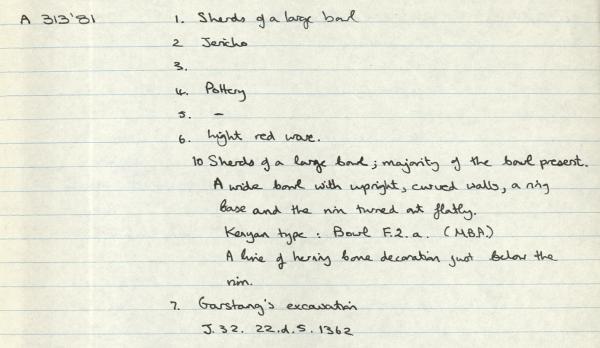 A 313'81
1. Sherds of a large bowl
2 Jericho
3.
4. Pottery
5. -
6. Light red ware.
10 Sherds of a large bowl; majority of the bowl present.
A wide bowl with upright, curved walls, a ring
base and the rim turned out flatly.
Kenyan type : Bowl F.2.a. (MBA.)
A line of herring bone decoration just below the
rim.
7. Garstang's excavation
J.32. 22.d.5. 1362